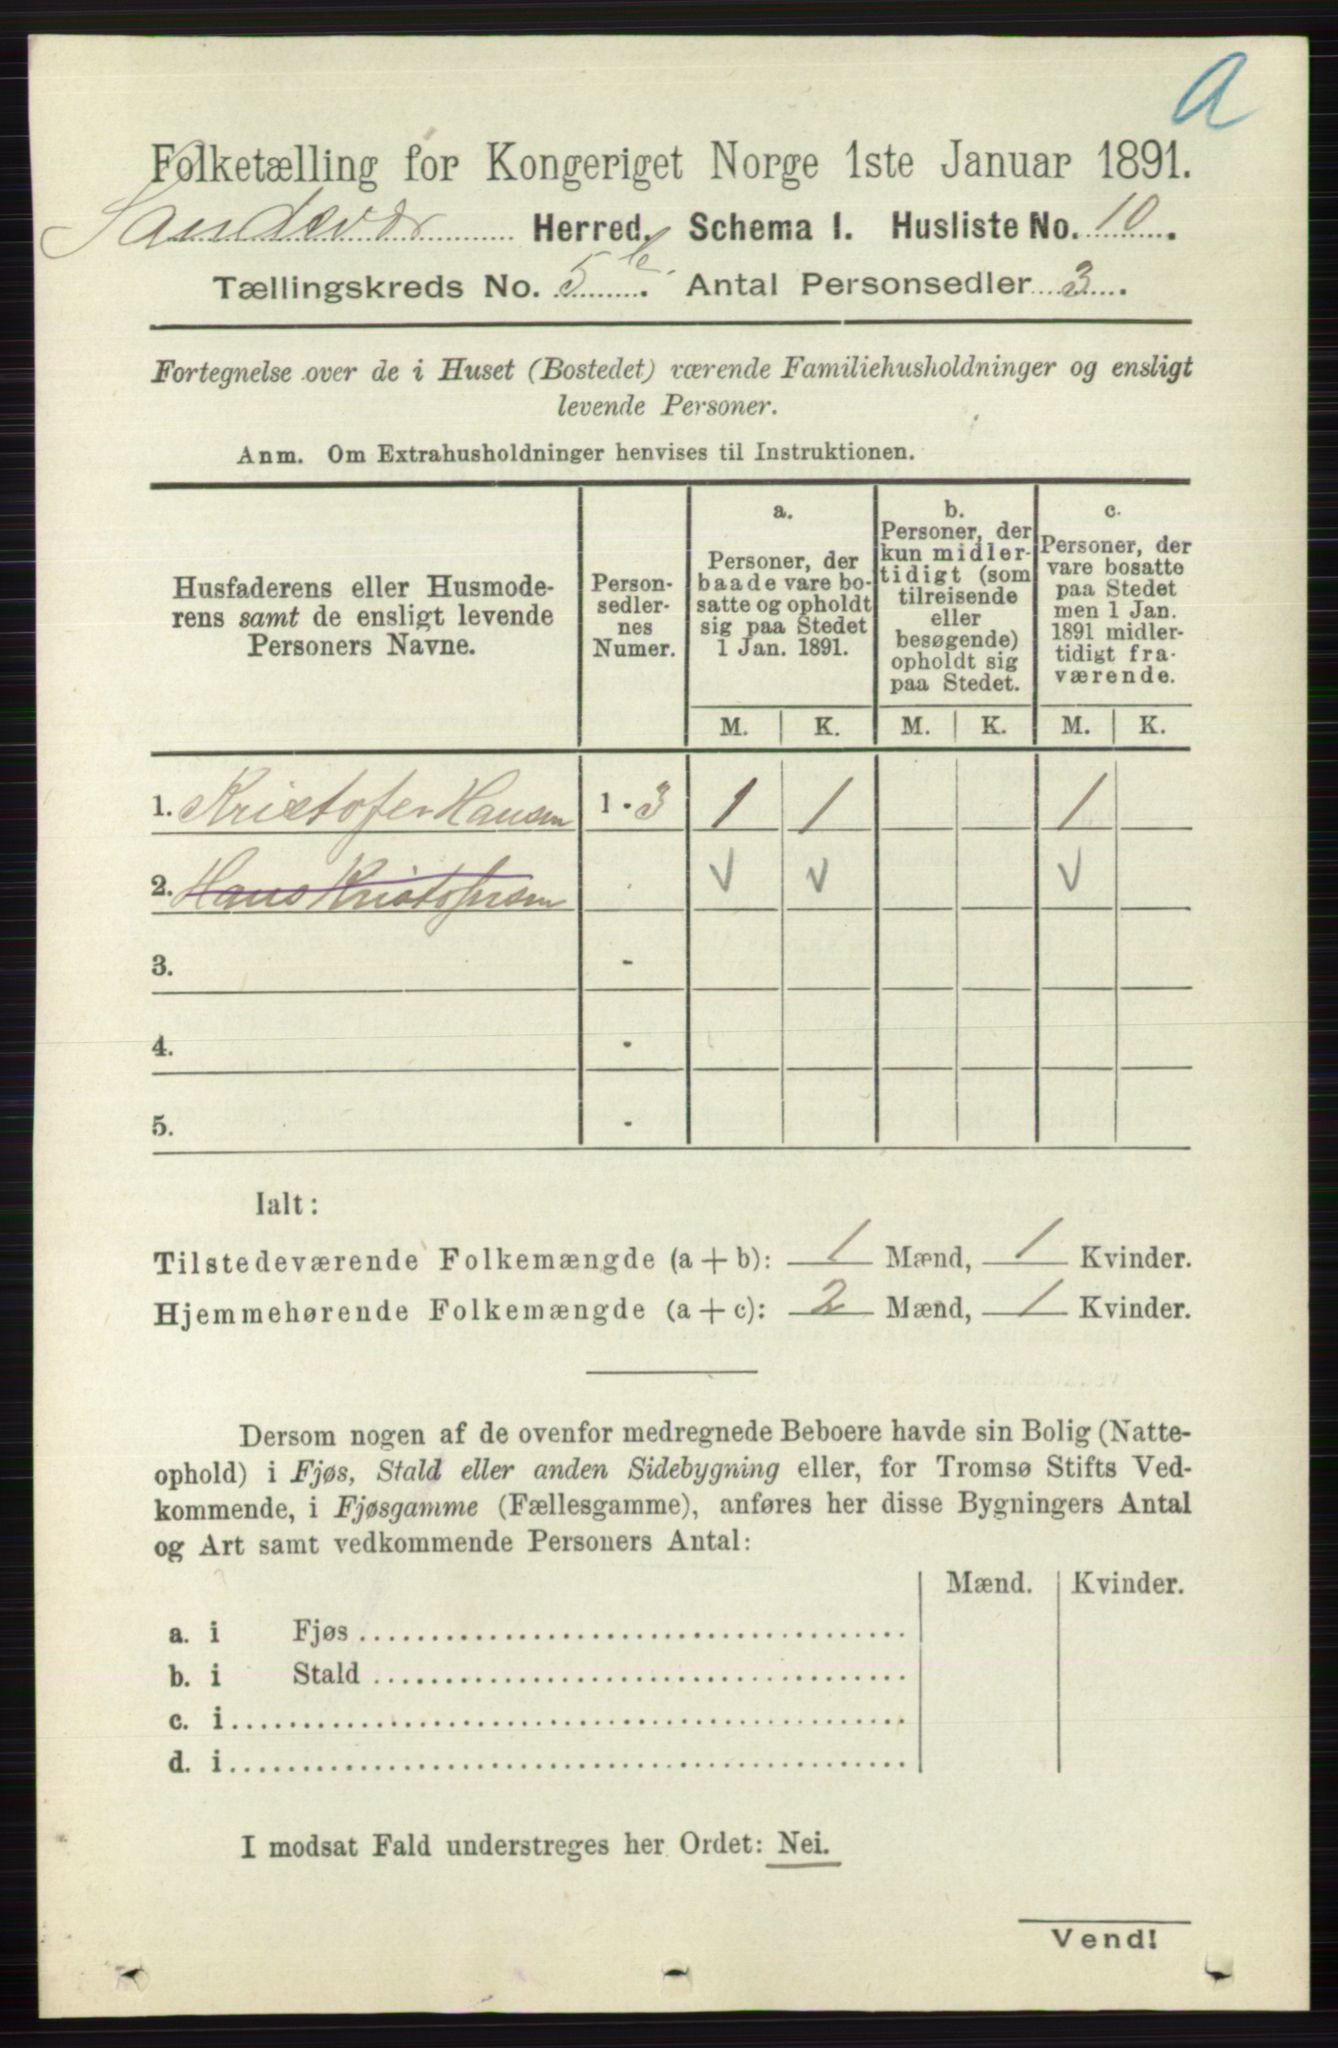 a
Folketælling for Kongeriget Norge 1ste Januar 1891.
Sandevær Herred. Schema 1. Husliste No. 10.
Tællingskreds No. 5te. Antal Personsedler 3.
Fortegnelse over de i Huset (Bostedet) værende Familiehusholdninger og ensligt
levende Personer.
Anm. Om Extrahusholdninger henvises til Instruktionen.
Husfaderens eller Husmode-
rens samt de ensligt levende
Personers Navne.
Person-
sedler-
nes
Numer.
a.
Personer, der
baade vare bo-
satte og opholdt
sig paa Stedet
1 Jan. 1891.
b.
Personer, der
kun midler-
tidigt (som
tilreisende
eller
besøgende)
opholdt sig
paa Stedet.
c.
Personer, der
vare bosatte
paa Stedet
men 1 Jan.
1891 midler-
tidigt fra-
værende.
M. K. M. K. M. K.
1. Kristofer Hansen 1 - 3 1 1 1
2. Hans Kristofersen V V V
3. -
4. -
5. -
Ialt:
Tilstedeværende Folkemængde (a + b): 1 Mænd, 1 Kvinder.
Hjemmehørende Folkemængde (a + c): 2 Mænd, 1 Kvinder.
Dersom nogen af de ovenfor medregnede Beboere havde sin Bolig (Natte-
ophold) i Fjøs, Stald eller anden Sidebygning eller, for Tromsø Stifts Ved-
kommende, i Fjøsgamme (Fællesgamme), anføres her disse Bygningers Antal
og Art samt vedkommende Personers Antal:
Mænd. Kvinder.
a. i Fjøs
b. i Stald
c. i
d. i
I modsat Fald understreges her Ordet: Nei.
Vend!